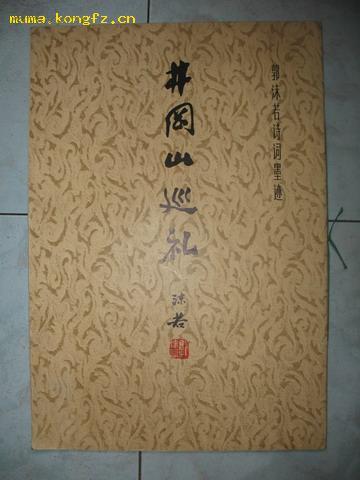 muma.kongfz.cn
郭沫若诗词墨迹
井冈山巡礼
沫若